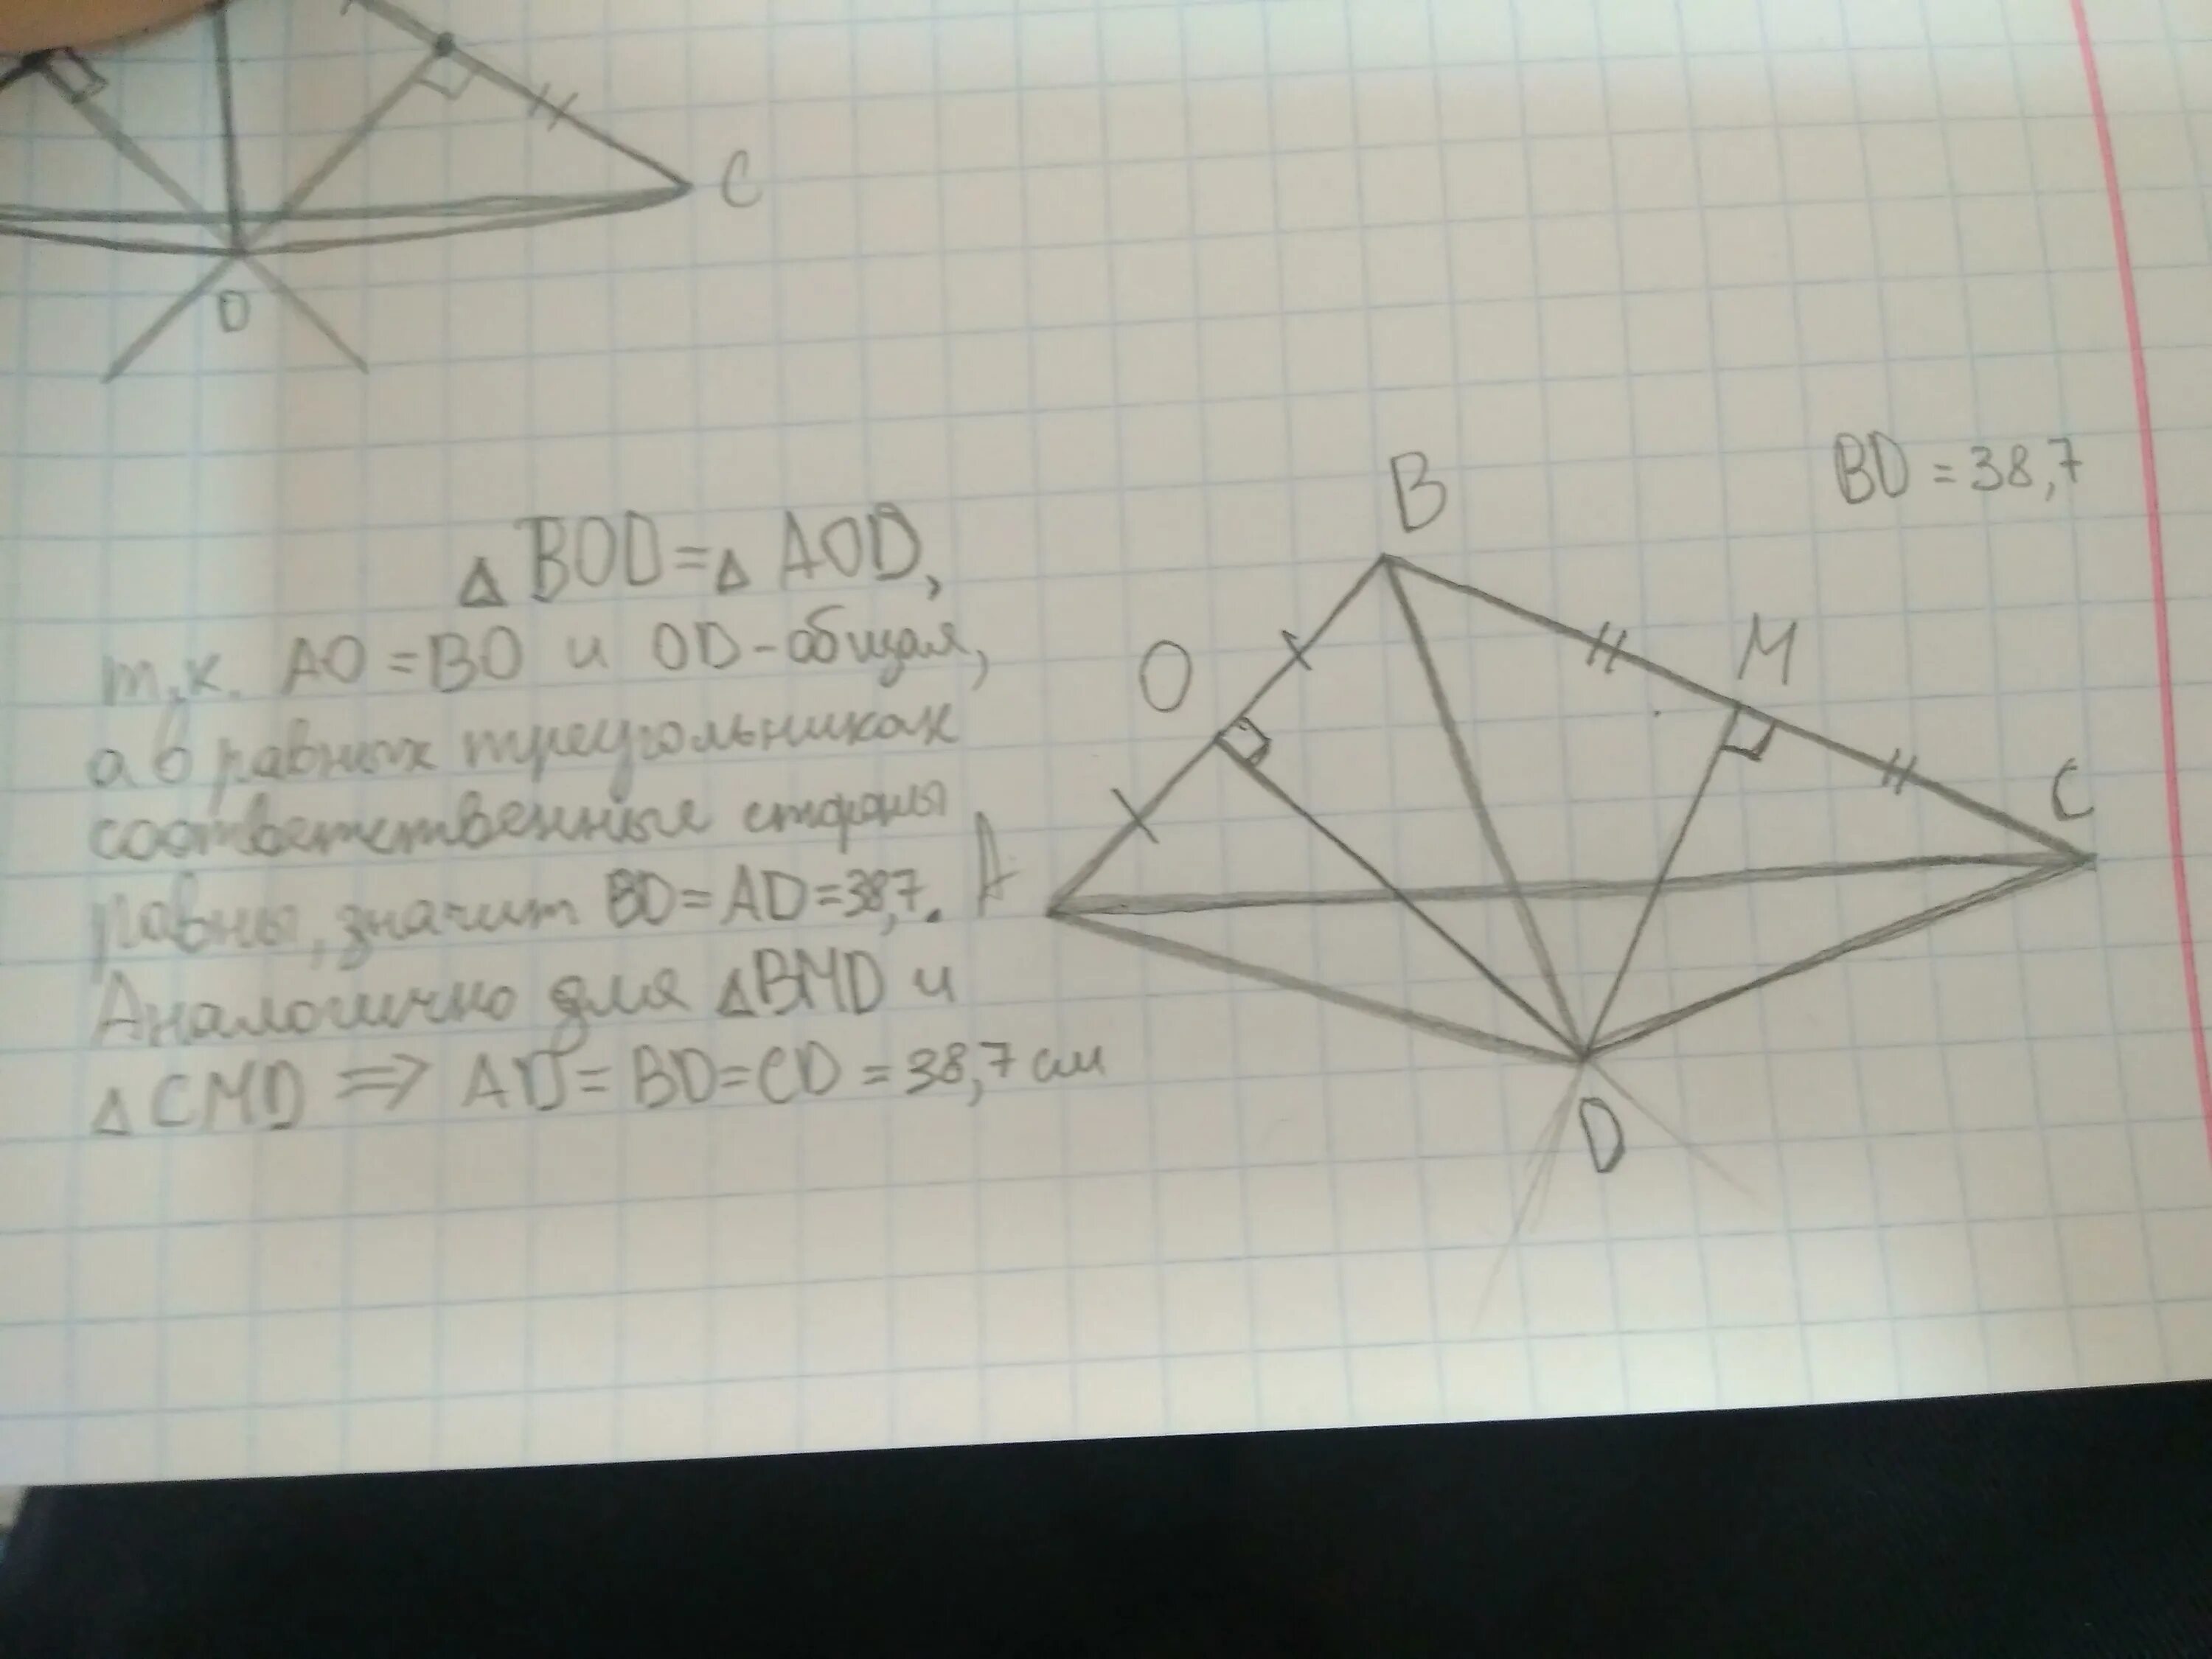 C
D
BD = 38,7
B
△ BOD = △ AOD,
т.к. AO = BO и OD - общая,
O
M
а в равных треугольниках
C
соответственные стороны
A
равны, значит BD = AD = 38,7.
Аналогично для △BMD и
△ CMD ⇒ AD = BD = CD = 38,7 см
D